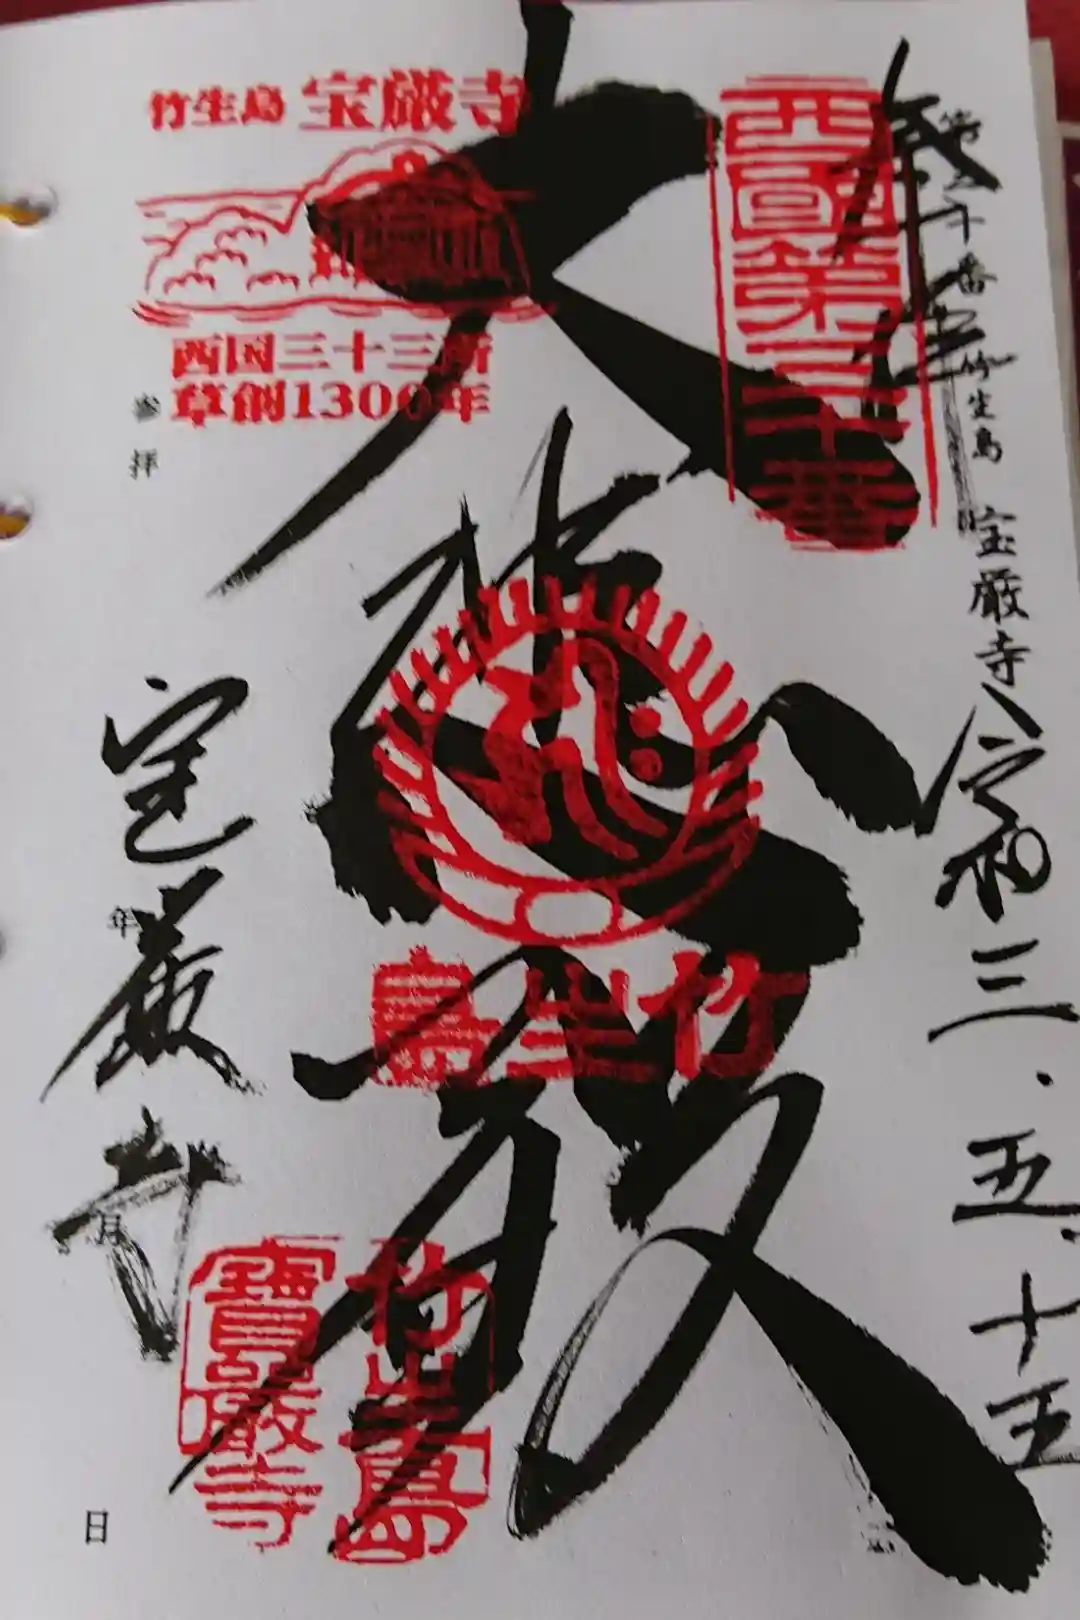 第三十番 竹生島 宝厳寺
奉拝
令和三.五.十五
西國第三十番
大悲殿
竹生島
竹生島 宝厳寺
西国三十三所
草創1300年
参拝
年
月
日
宝厳寺
竹生島
寶嚴寺